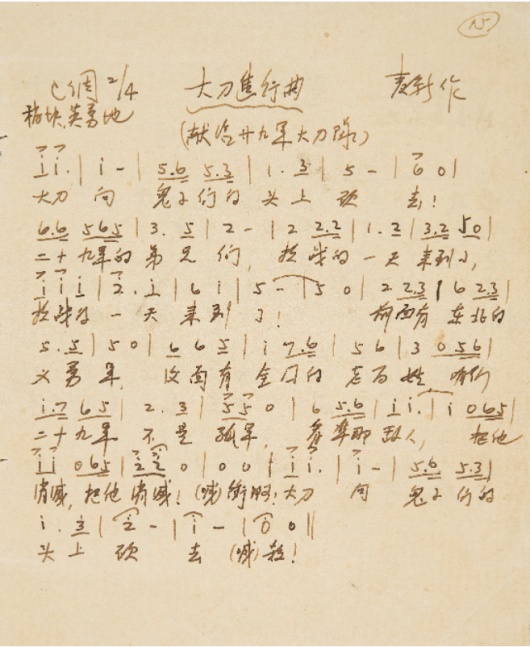 15
C调 2/4 大刀进行曲 麦新作
稍快、英勇地
(献给廿九军大刀队)
i i. | i - | 5.6 5.3 | 1. 3 | 5 - | 6 0 |
大刀 向 鬼子们的 头上 砍 去!
6.6 565 | 3. 5 | 2 - | 2 2.2 | 1. 2 | 3.2 50 |
二十九军的弟兄们, 抗战的一天来到了,
i i i | 2. i | 6 i | 5 - | 5 0 | 2 2.3 | 6 2.3 |
抗战的一天来到了! 前面有 东北的
5. 5 | 5 0 | 6 6 5 | i 7.6 | 5 6 | 3 0 5 6 |
义勇军, 后面有全国的老百姓 咱们
i.7 6 5 | 2. 3 | 5 5 0 | 6 5.6 | i i. | i 0 6 5 |
二十九军 不是孤军, 看準那敌人, 把他
i i 0 6 5 | 2 2 0 | 0 0 | i i. | i - | 5.6 5.3 |
消灭, 把他消灭! (喊)衝啊! 大刀 向 鬼子们的
i. 3 | 2 - | i - | 0 0 ||
头上 砍 去 (喊)杀!